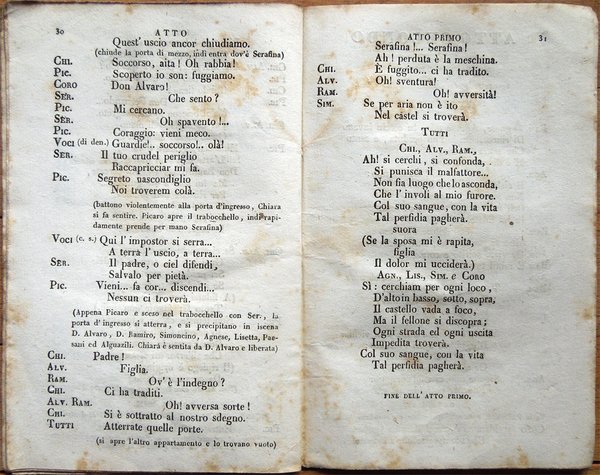 30 ATTO
Quest' uscio ancor chiudiamo.
(chiude la porta di mezzo, indi entra dov'è Serafina)
CHI. Soccorso, aita! Oh rabbia!
PIC. Scoperto io son: fuggiamo.
CORO Don Alvaro!
SER. Che sento?
PIC. Mi cercano.
SER. Oh spavento!..
PIC. Coraggio: vieni meco.
VOCI (di den.) Guardie!.. soccorso!.. olà!
SER. Il tuo crudel periglio
Raccapricciar mi fa.
PIC. Segreto nascondiglio
Noi troverem colà.
(battono violentemente alla porta d'ingresso, Chiara
si fa sentire. Picaro apre il trabocchello, indi rapi-
damente prende per mano Serafina)
VOCI (c. s.) Qui l'impostor si serra...
A terra l'uscio, a terra...
SER. Il padre, o ciel difendi,
Salvalo per pietà.
PIC. Vieni... fa cor... discendi...
Nessun ci troverà.
(Appena Picaro e sceso nel trabocchello con Ser., la
porta d'ingresso si atterra, e si precipitano in iscena
D. Alvaro, D. Ramiro, Simoncino, Agnese, Lisetta, Pae-
sani ed Alguazili. Chiara è sentita da D. Alvaro e liberata)
CHI. Padre!
ALV. Figlia.
RAM. Ov'è l'indegno?
CHI. Ci ha traditi.
ALV. RAM. Oh! avversa sorte!
CHI. Si è sottratto al nostro sdegno.
TUTTI Atterrate quelle porte.
(si apre l'altro appartamento e lo trovano vuoto)
ATTO PRIMO 31
Serafina!... Serafina!
Ah! perduta è la meschina.
CHI. È fuggito... ci ha tradito.
ALV. Oh! sventura!
RAM. Oh! avversità!
SIM. Se per aria non è ito
Nel castel si troverà.
TUTTI
CHI., ALV., RAM.,
Ah! si cerchi, si confonda,
Si punisca il malfattore...
Non fia luogo che lo asconda,
Che l'involi al mio furore.
Col suo sangue, con la vita
Tal perfidia pagherà.
suora
(Se la sposa mi è rapita,
figlia
Il dolor mi ucciderà.)
AGN., LIS., SIM. e CORO
Sì: cerchiam per ogni loco,
D'alto in basso, sotto, sopra,
Il castello vada a foco,
Ma il fellone si discopra;
Ogni strada ed ogni uscita
Impedita troverà.
Col suo sangue, con la vita
Tal perfidia pagherà.
FINE DELL'ATTO PRIMO.